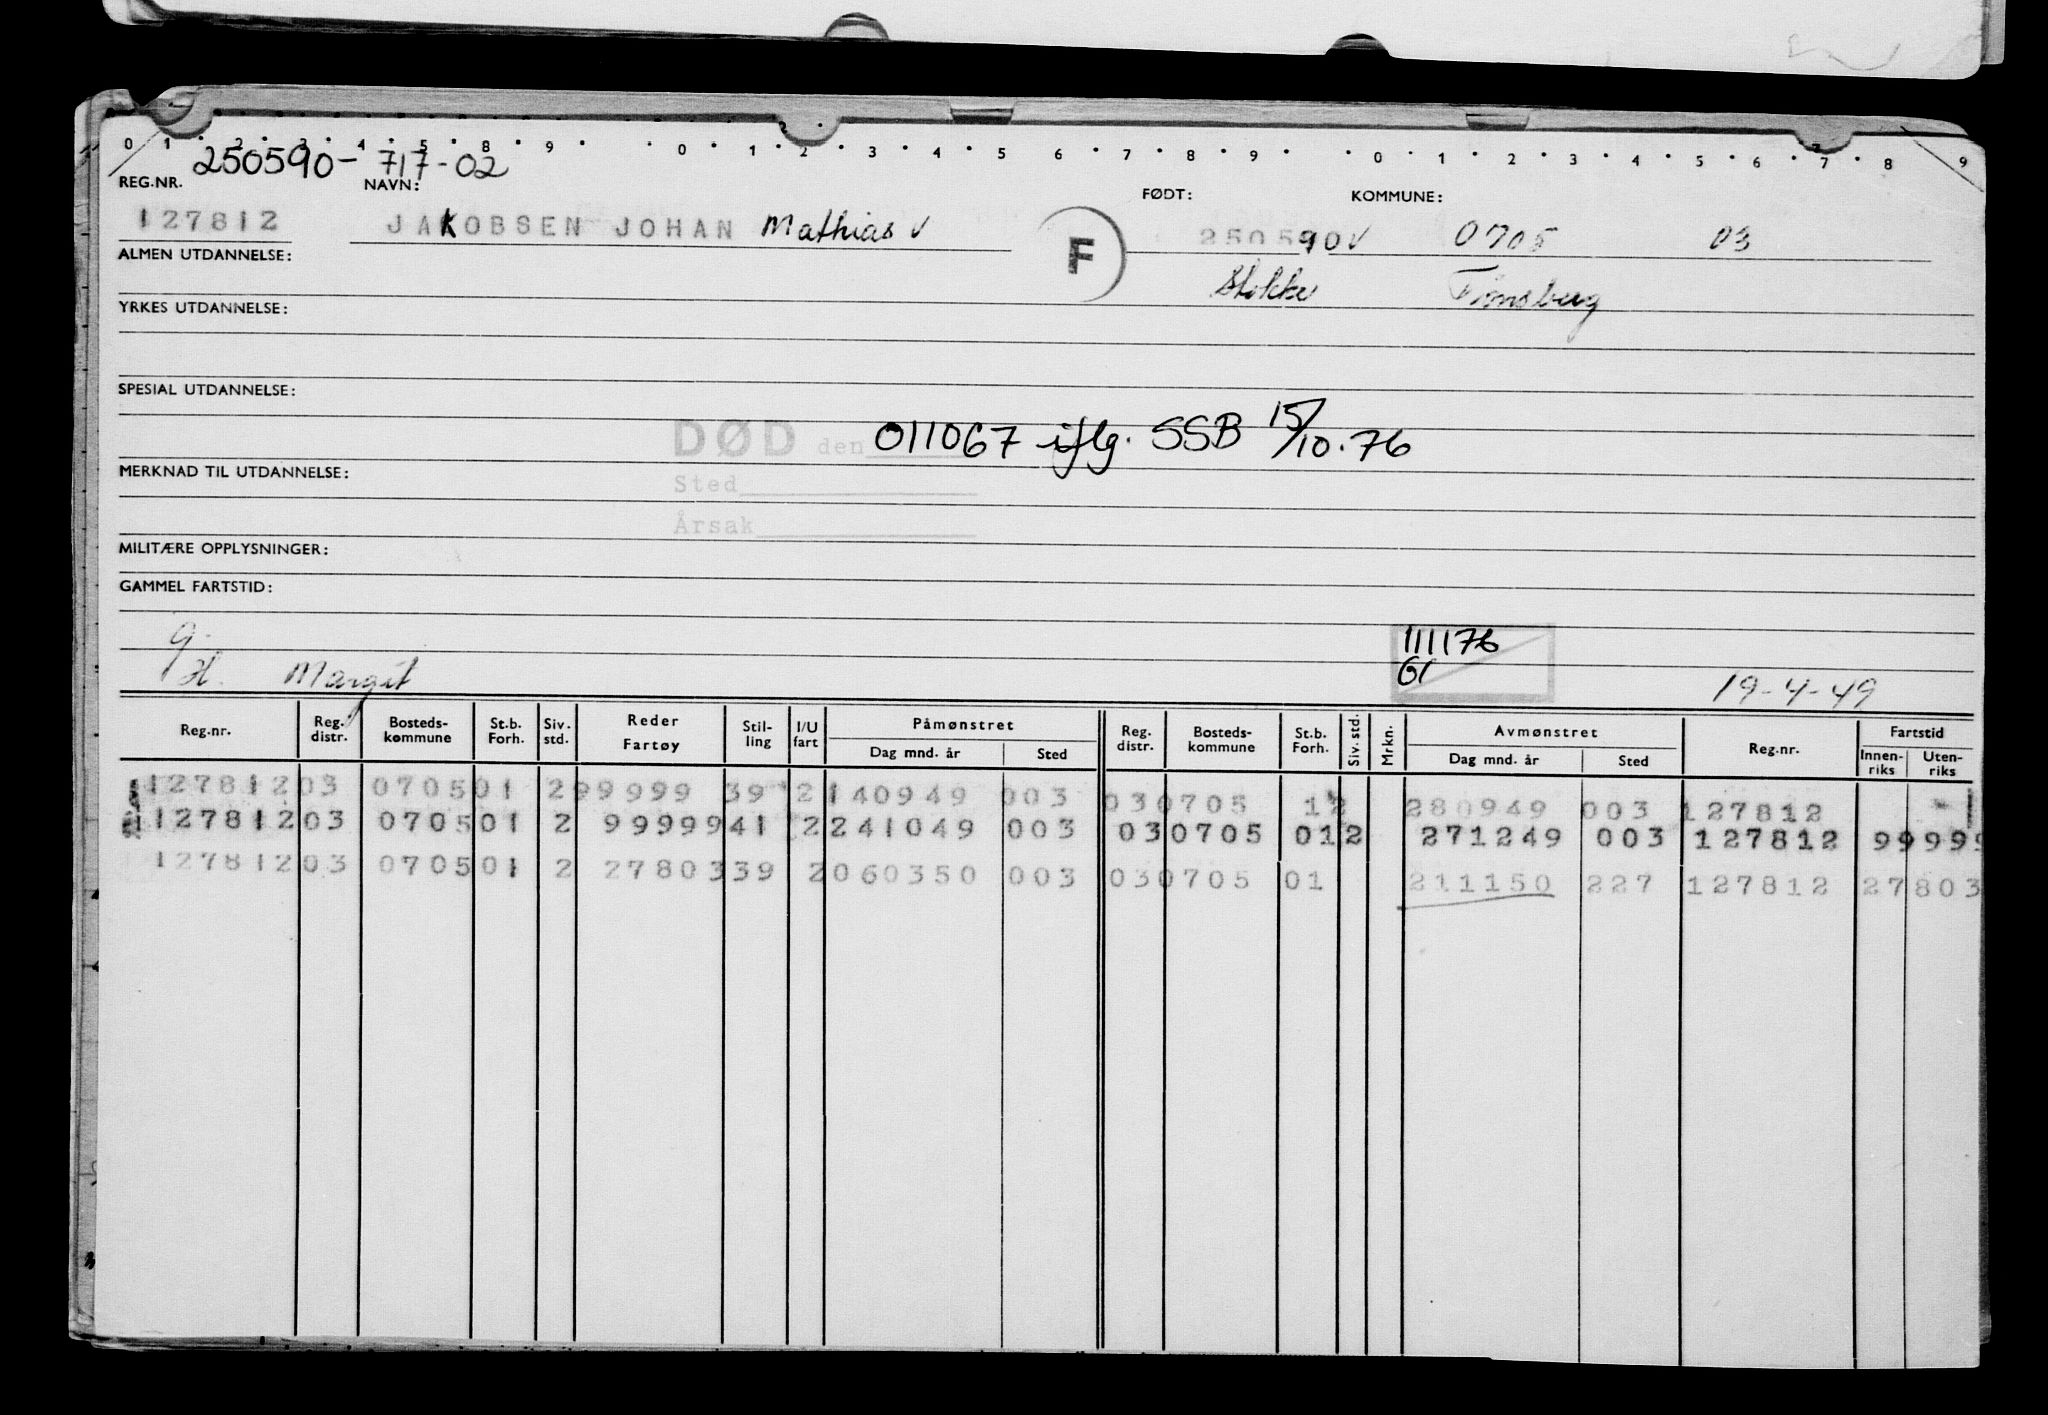 0 1 2 3 4 5 8 9 0 1 2 3 4 5 6 7 8 9 0 1 2 3 4 5 6 7 8 9
250590-717-02
REG.NR. NAVN: FØDT: KOMMUNE:
127812 JAKOBSEN JOHAN Mathias v F 250590 v 0705 03
ALMEN UTDANNELSE: Stokke Tønsberg
YRKES UTDANNELSE:
SPESIAL UTDANNELSE:
DØD den 011067 iflg. SSB 15/10.76
MERKNAD TIL UTDANNELSE:
Sted
Årsak
MILITÆRE OPPLYSNINGER:
GAMMEL FARTSTID:
111176
g. H. Margit 19-4-49
Reg.nr. Reg. distr. Bosteds-kommune St.b. Forh. Siv. std. Reder Fartøy Stil-ling I/U fart Påmønstret Dag mnd. år Sted Reg. distr. Bosteds-kommune St.b. Forh. Siv. std. Mrkn. Avmønstret Dag mnd. år Sted Reg.nr. Fartstid Innen-riks Uten-riks
127812 03 0705 01 2 99999 39 2 140949 003 03 0705 1 2 280949 003 127812
127812 03 0705 01 2 99999 41 2 241049 003 03 0705 01 2 271249 003 127812 99999
127812 03 0705 01 2 27803 39 2 060350 003 03 0705 01 211150 227 127812 27803